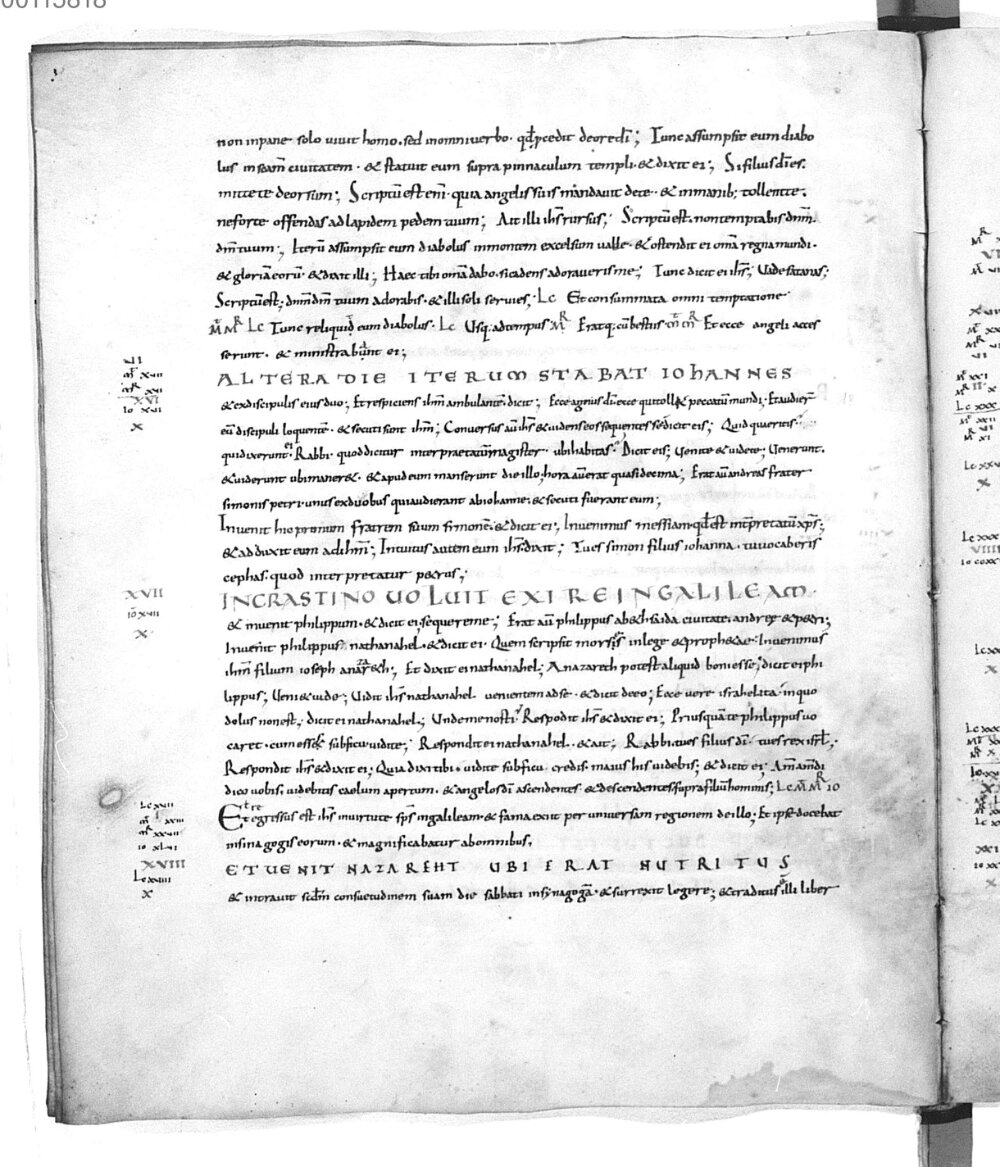 00115818
non inpane solo uiuit homo. sed inomniuerbo. qđpcedit deoredī; Tunc assumpsit eum diabo
lus insēam ciuitatem. & statuit eum supra pinnaculum templi. & dixit ei; Si filius dī es.
mitte te deorsum; Scriptū est enī. quia angelis suis mandauit dete. & inmanib; tollent te.
neforte offendas adlapidem pedem tuum; Ait illi ihs rursus; Scriptū est. nontemptabis dnm̄
dm̄ tuum; Iterū assumpsit eum diabolus inmontem excelsum ualde. & ostendit ei omīa regna mundi.
& gloriā eorū. & dixit illi; Haec tibi omīa dabo. sicadens adoraueris me; Tunc dicit ei ihs; Uade satanas;
Scriptū est; dnm̄ dm̄ tuum adorabis. & illi soli seruies; Lc Et consummata omni temptatione
M̄ MR Lc Tunc reliquid eum diabolus. Lc Usq; adtempus MR Eratq; cū bestiis Et ecce angeli acces
serunt. & ministrabant ei;
VII
xvii
xvi
XVI
Io xvi
X
ALTERA DIE ITERUM STABAT IOHANNES
& exdiscipulis eius duo; Et respiciens ihm̄ ambulantē dicit; Ecce agnus dī ecce qui tollit peccatū mundi. Et audier
eū discipuli loquentē. & secuti sunt ihm̄; Conuersus aū ihs & uidens eos sequentes se dicit eis; Quid queritis
qui dixerunt ei. Rabbi. quod dicitur interpraetatū magister. ubi habitas? Dicit eis; Uenite & uidete; Uenerunt.
& uiderunt ubi maneret. & apud eum manserunt die illo; hora aū erat quasi decima; Erat aū andreas frater
simonis petri. unus exduobus qui audierant abiohanne. & secuti fuerant eum;
Inuenit hic primum fratrem suum simonē. & dicit ei; Inuenimus messiam. qđ est intpretatū xps;
& adduxit eum adihm̄; Intuitus autem eum ihs dixit; Tu es simon filius iohanna. tu uocaberis
cephas. quod interpretatur petrus;
XVII
io xvii
X
INCRASTINO UOLUIT EXIRE INGALILEAM.
& inuenit philippum. & dicit ei; sequere me; Erat aū philippus abethsaida ciuitate. andreę & petri;
Inuenit philippus nathanahel. & dicit ei. Quem scripsit moyses inlege & prophetae. Inuenimus
ihm̄ filium ioseph anazareth; Et dixit ei nathanahel; Anazareth potest aliquid boni esse; dicit ei phi
lippus; Ueni & uide; Uidit ihs nathanahel uenientem adse. & dicit deeo; Ecce uere israhelita inquo
dolus non est. dicit ei nathanahel; Unde me nosti? Respōdit ihs & dixit ei; Priusquā te philippus uo
caret. cum esses subficu uidi te; Respondit ei nathanahel. & ait; Rabbi. tu es filius dī. tu es rex isrl;
Respondit ihs & dixit ei; Quia dixi tibi. uidi te subficu credis. maius his uidebis; & dicit ei; Am̄ am̄ di
dico uobis. uidebitis caelum apertum. & angelos dī ascendentes & descendentes supra filiū hominis; Lc M̄ MR IO
Lc xvii
xviii
xxvii
io xlvi
Et egressus est ihs inuirtute sps ingalileam. & fama exiit per uniuersam regionem deillo; Et ipse docebat
insinagogis eorum. & magnificabatur abomnibus;
XVIII
Lc xviii
X
ET UENIT NAZAREHT UBI ERAT NUTRITUS
& intrauit scdm̄ consuetudinem suam die sabbati insynagogā. & surrexit legere; & traditus ē illi liber